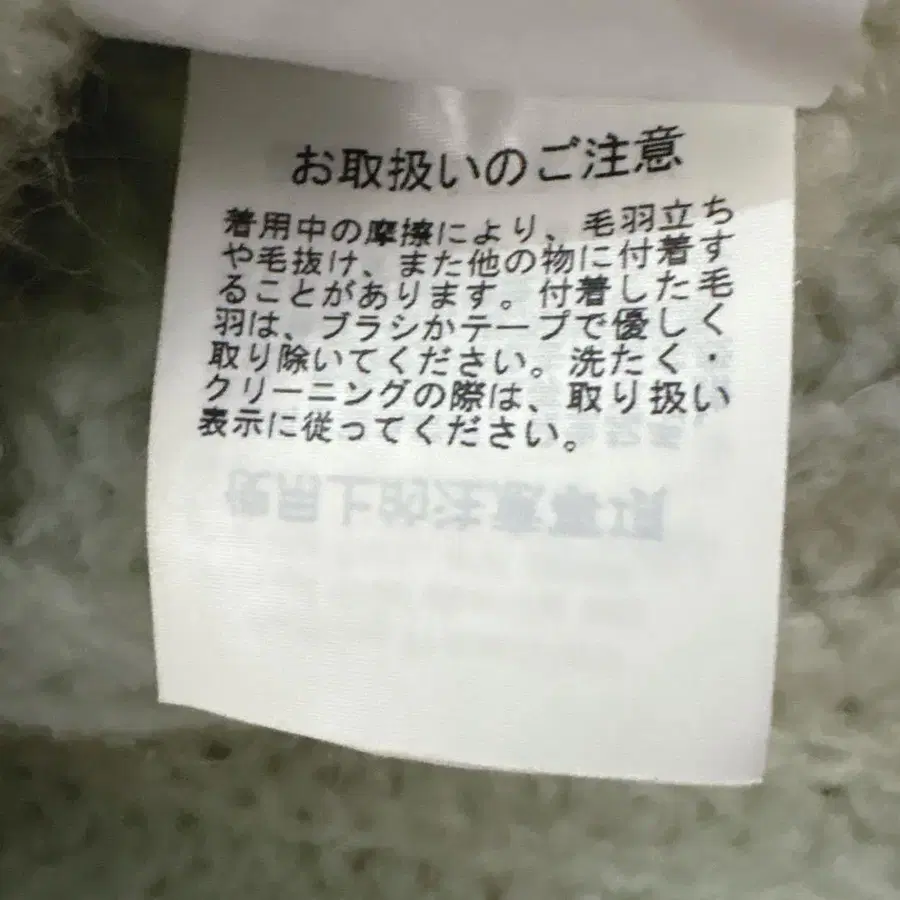 お取扱いのご注意
着用中の摩擦により、毛羽立ち
や毛抜け、また他の物に付着す
ることがあります。付着した毛
羽は、ブラシかテープで優しく
取り除いてください。洗たく・
クリーニングの際は、取り扱い
表示に従ってください。
使用上的注意事項